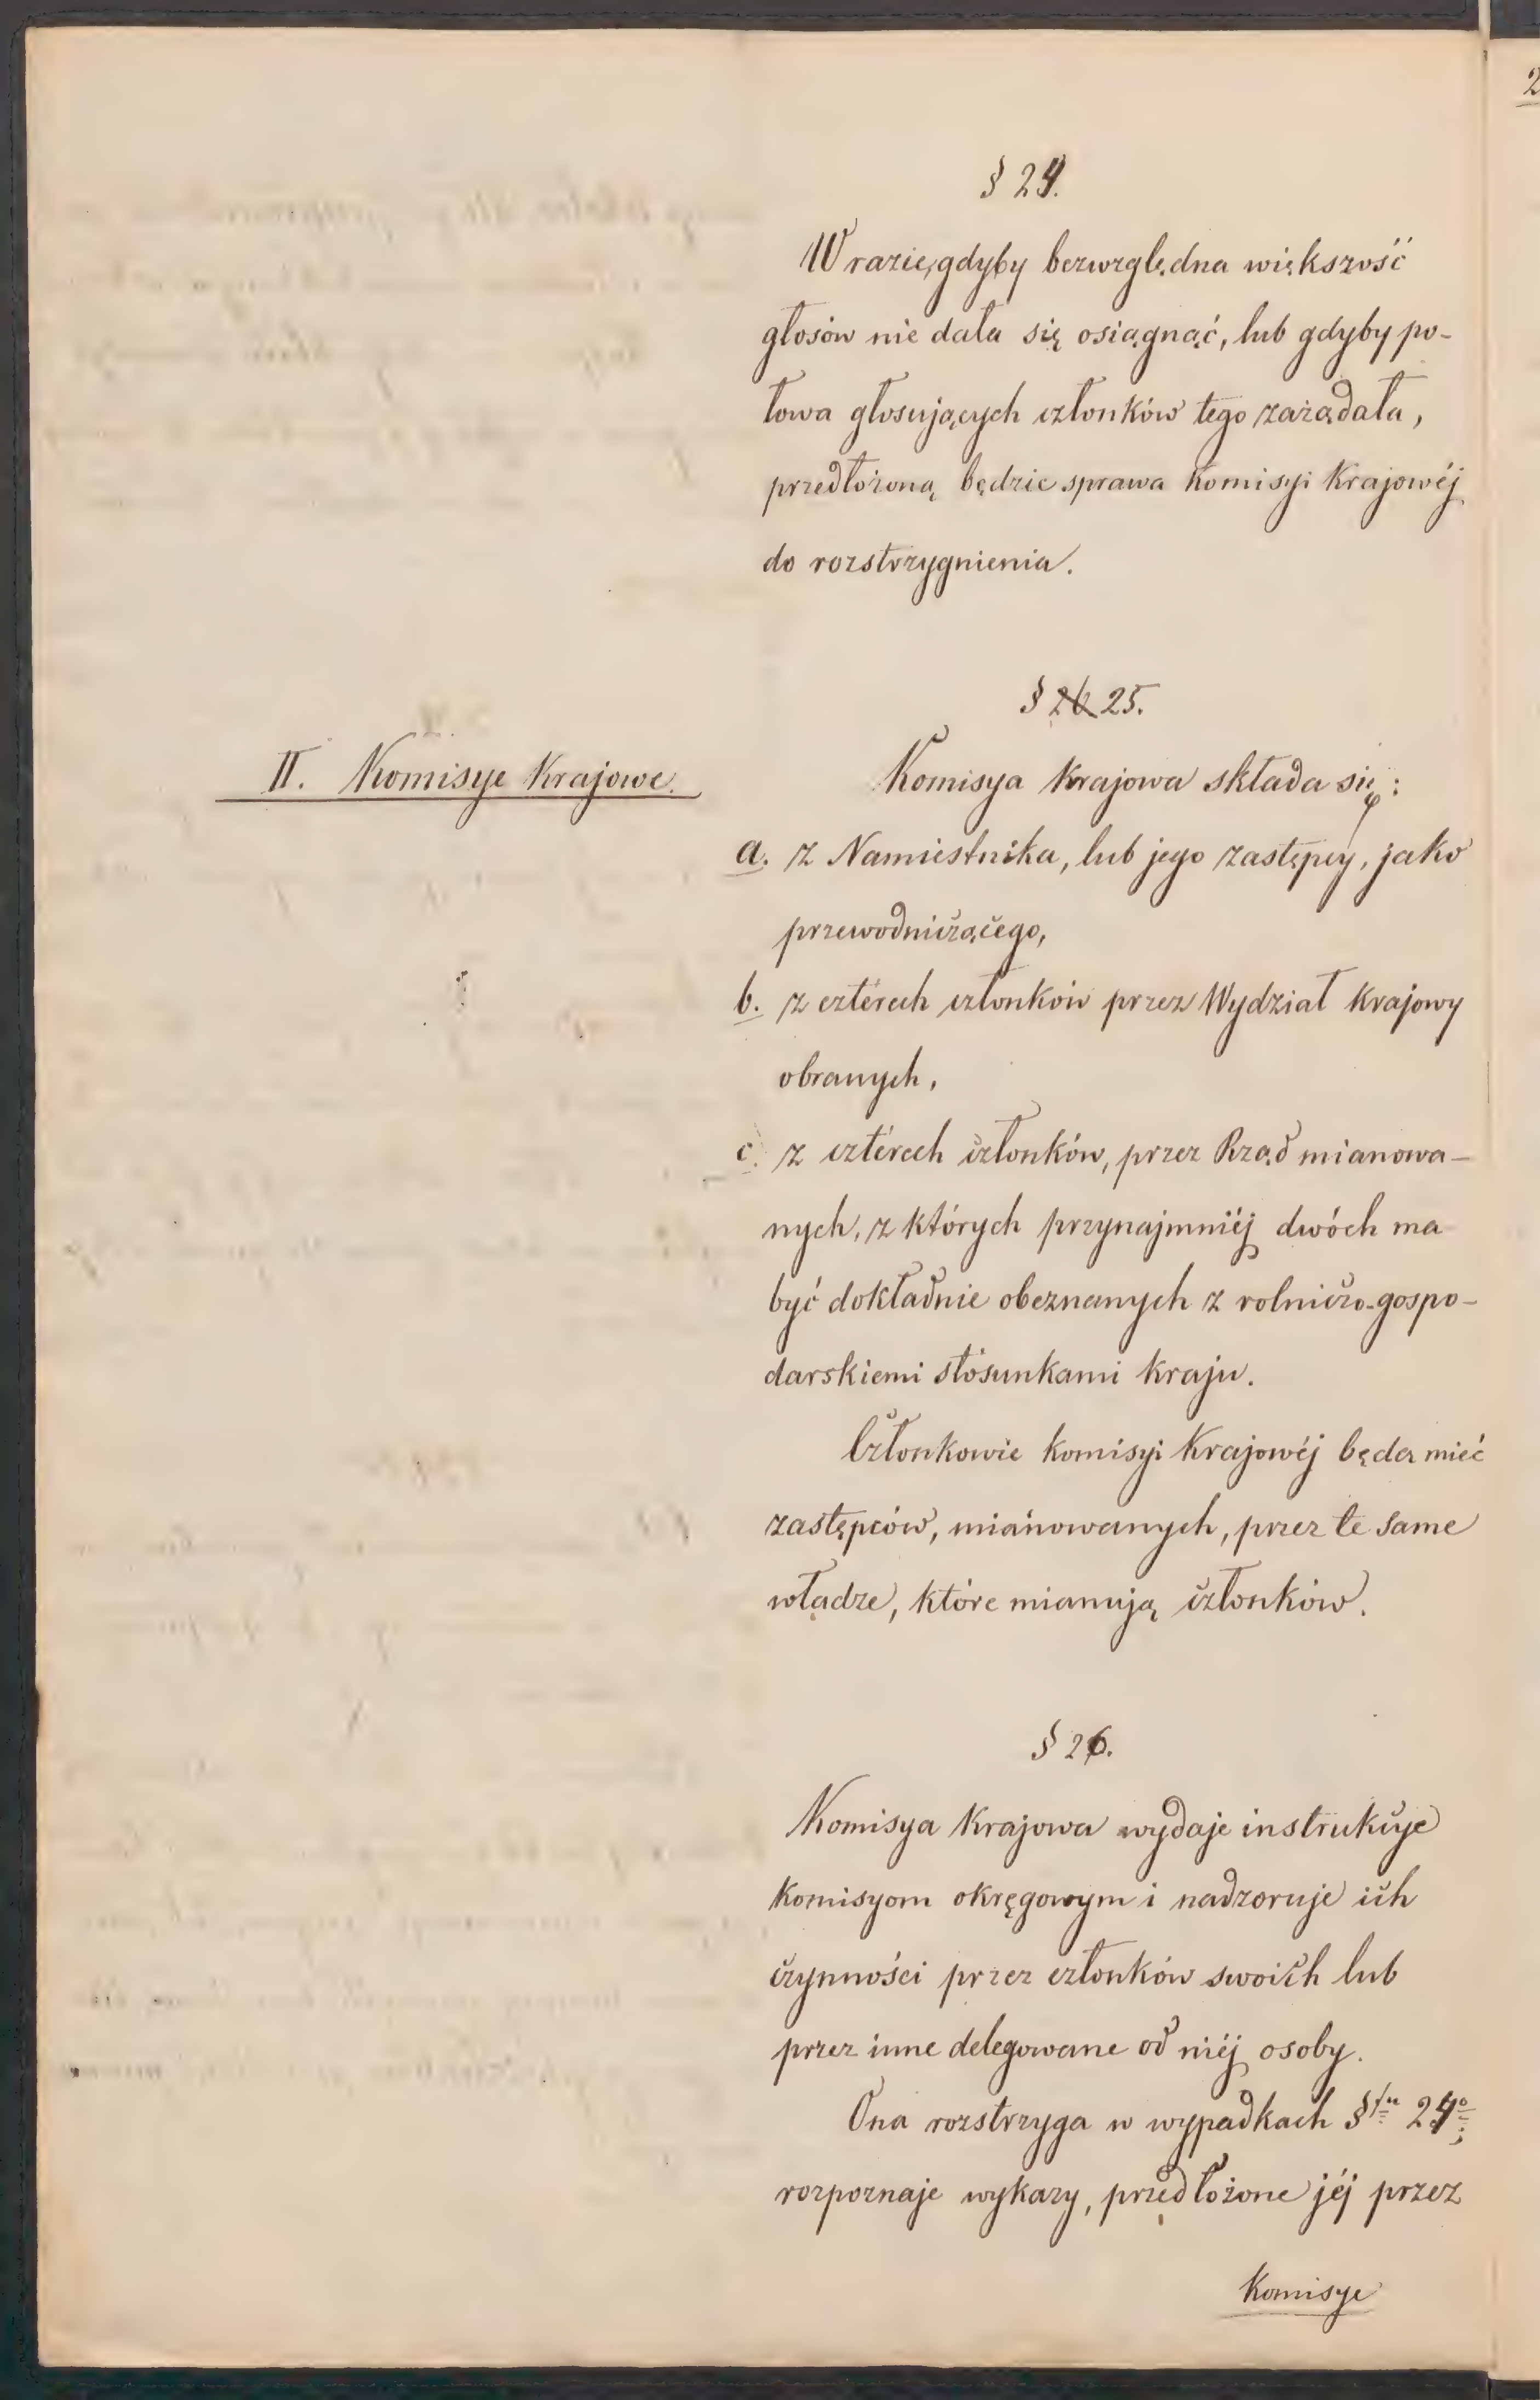 § 24.
W razie, gdyby bezwzględna większość
głosów nie dała się osiągnąć, lub gdyby po-
łowa głosujących członków tego zażądała,
przedłożoną będzie sprawa Komisyi Krajowéj
do rozstrzygnienia.
§ 26 25.
II. Komisye Krajowe.
Komisya Krajowa składa się:
a. z Namiestnika, lub jego zastępcy, jako
przewodniczącego,
b. z cztérech członków przez Wydział Krajowy
obranych,
c. z cztérech członków, przez Rząd mianowa-
nych, z których przynajmniéj dwóch ma
być dokładnie obeznanych z rolniczo-gospo-
darskiemi stósunkami kraju.
Członkowie komisyi Krajowéj będą mieć
zastępców, mianowanych, przez te same
władze, które mianują członków.
§ 26.
Komisya Krajowa wydaje instrukcye
komisyom okręgowym i nadzoruje ich
czynności przez członków swoich lub
przez inne delegowane od niéj osoby.
Ona rozstrzyga w wypadkach §fu 24o;
rozpoznaje wykazy, przedłożone jéj przez
Komisye
2